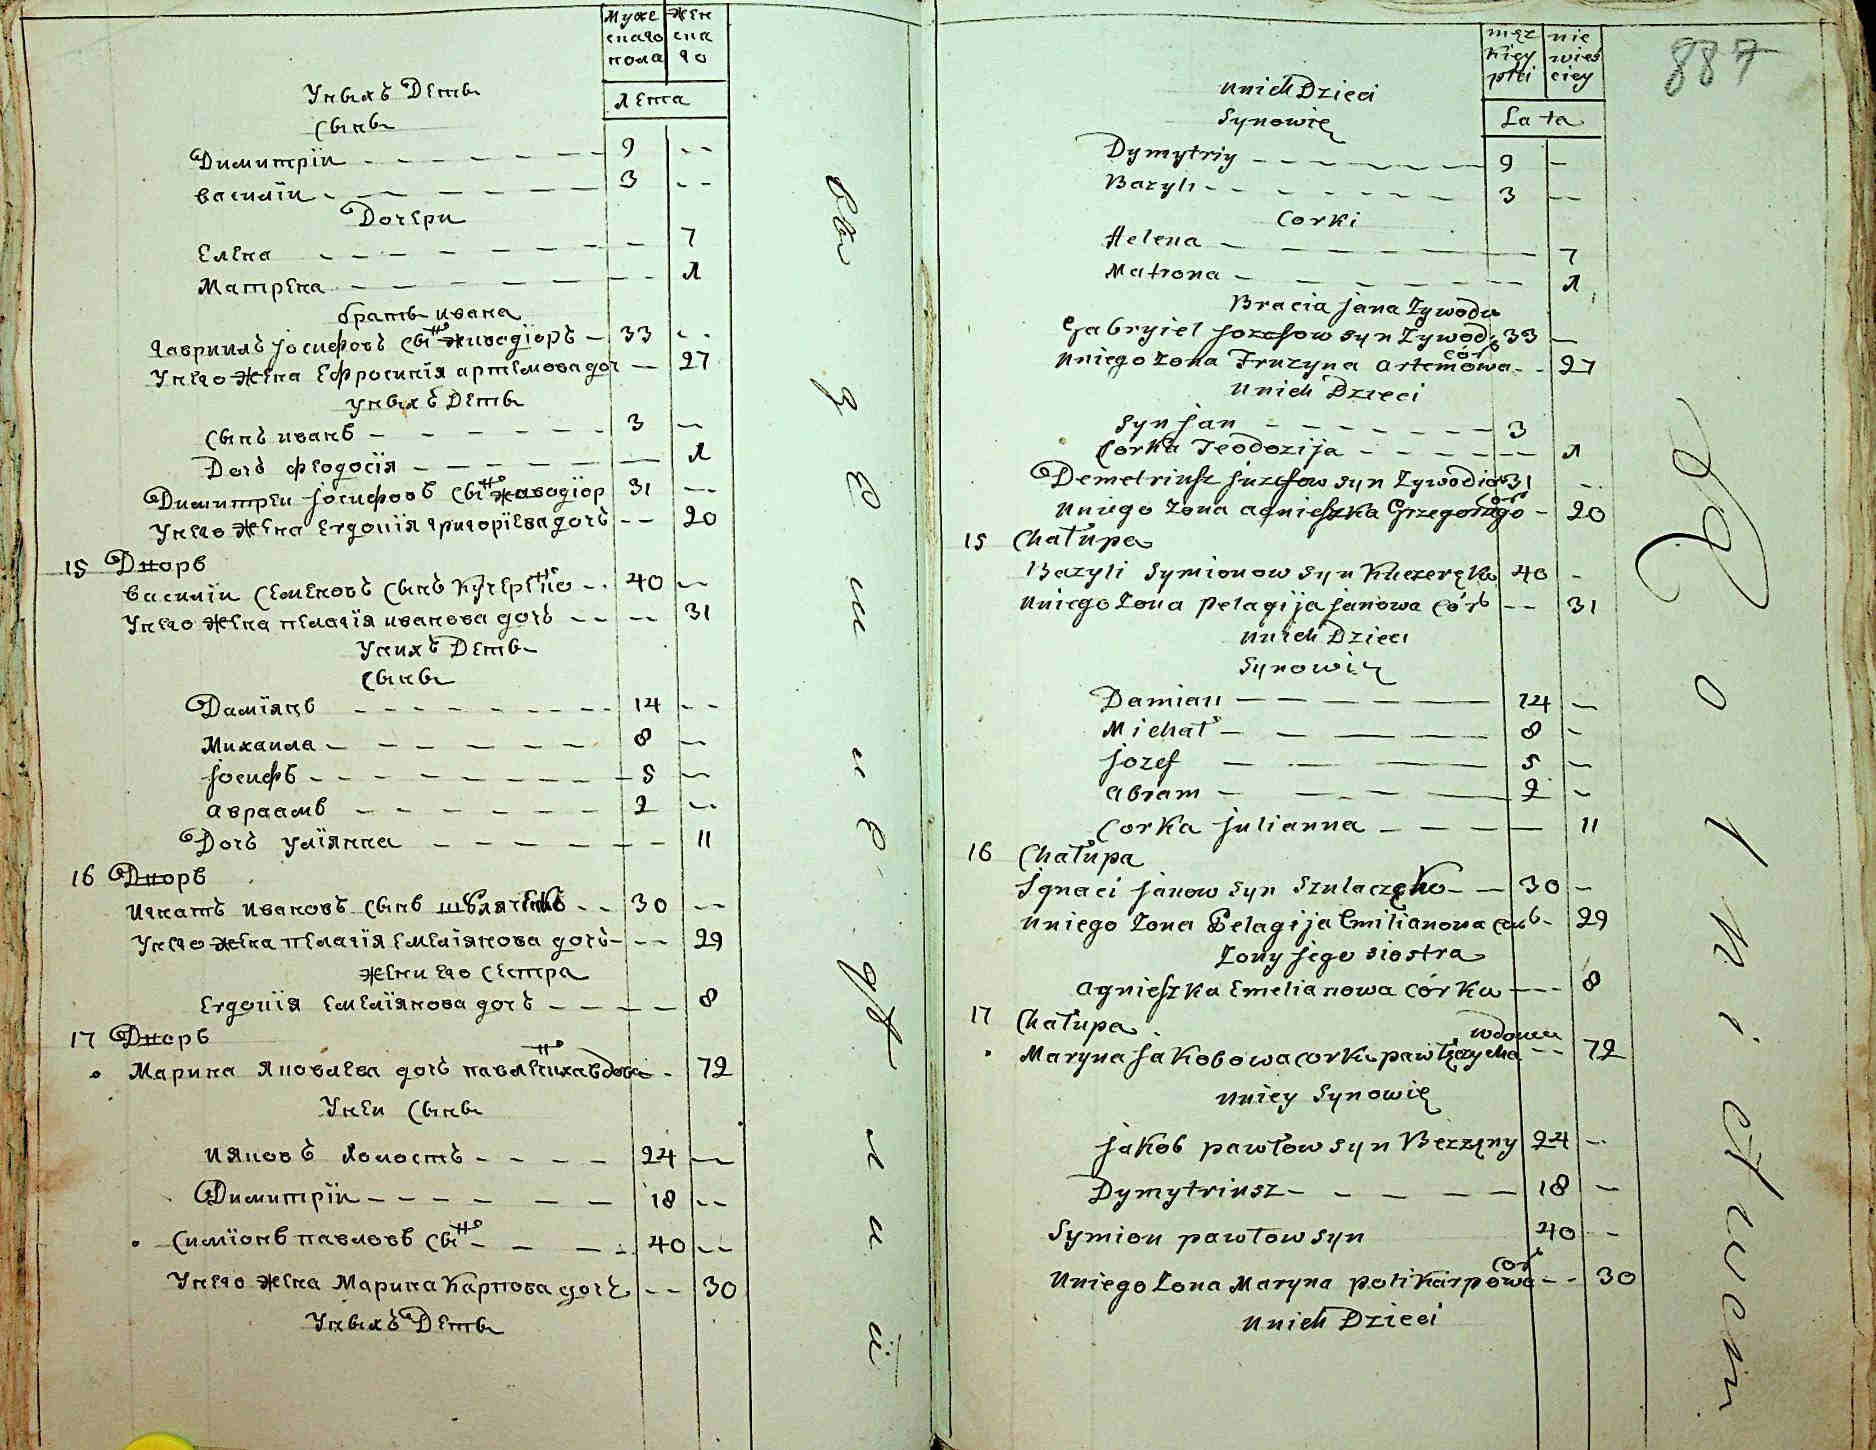 Муже
скаго
пола
Жен
ска
го
лета
Унихъ Дети
Сыны
Димитрїи 9
василїи 3
Дочери
Елена 7
Матрена 1
браты ивана
гавриилъ Іосифовъ сынъ живадїоръ 33
Унего жена Ефросинїя артемова доч 27
унихъ Дети
Сынъ иванъ 3
Дочь феодосїя 1
Димитреи Іосифовъ сынъ живодїор 31
Унего жена Евдокїя григорїева дочь 20
15 Дворъ
василїи Семеновъ Сынъ Кучеренко 40
Унего жена пелагїя иванова дочь 31
Унихъ Дети
Сыны
Дамїянъ 14
Михаила 8
Іосифъ 5
авраамъ 2
Дочь улїянна 11
16 Дворъ
Игнатъ Ивановъ Сынъ 30
Унего жена пелагїя Емелїянова дочь 29
жены его Сестра
Евдокїя Емелїянова дочь 8
17 Дворъ
Марина Яковлева дочь вдова 72
Унеи Сыны
Ияковъ холостъ 24
Димитрїи 18
Симїонъ павловъ сынъ 40
Унего жена Марина Карпова дочь 30
Унихъ Дети
въ
г
е
887
męz
kiey
płci
nie
wieś
ciey
Lata
Unich Dzieci
Synowie
Dymytriy 9
Bazyli 3
Corki
Helena 7
Matrona 1
Bracia Jana Zywodu
Gabryiel Jozefow syn Zywod 33
Uniego Zona Fruzyna Artemowa cór 27
Unich Dzieci
Syn Jan 3
Corka Teodozija 1
Demetriusz Juzefow syn Zywodior 31
Uniego Zona Agnieszka Grzegorzgo cór 20
15 Chałupa
Bazyli Symionow syn Kuczeręko 40
Uniego Zona Pelagija Janowa Cór 31
Unich Dzieci
Synowie
Damian 14
Michał 8
Jozef 5
Abram 2
Corka Julianna 11
16 Chałupa
Jgnaci Janow Syn Szulaczęko 30
Uniego Zona Pelagija Emilianowa 29
Zony Jego siostra
Agnieszka Emelianowa Córka 8
17 Chałupa
Maryna Jakobowa corka wdowa 72
Uniey Synowie
Jakob pawłow syn Bezzęny 24
Dymytriusz 18
Symion pawłow syn 40
Uniego Zona Maryna polikarpowa cor 30
Unich Dzieci